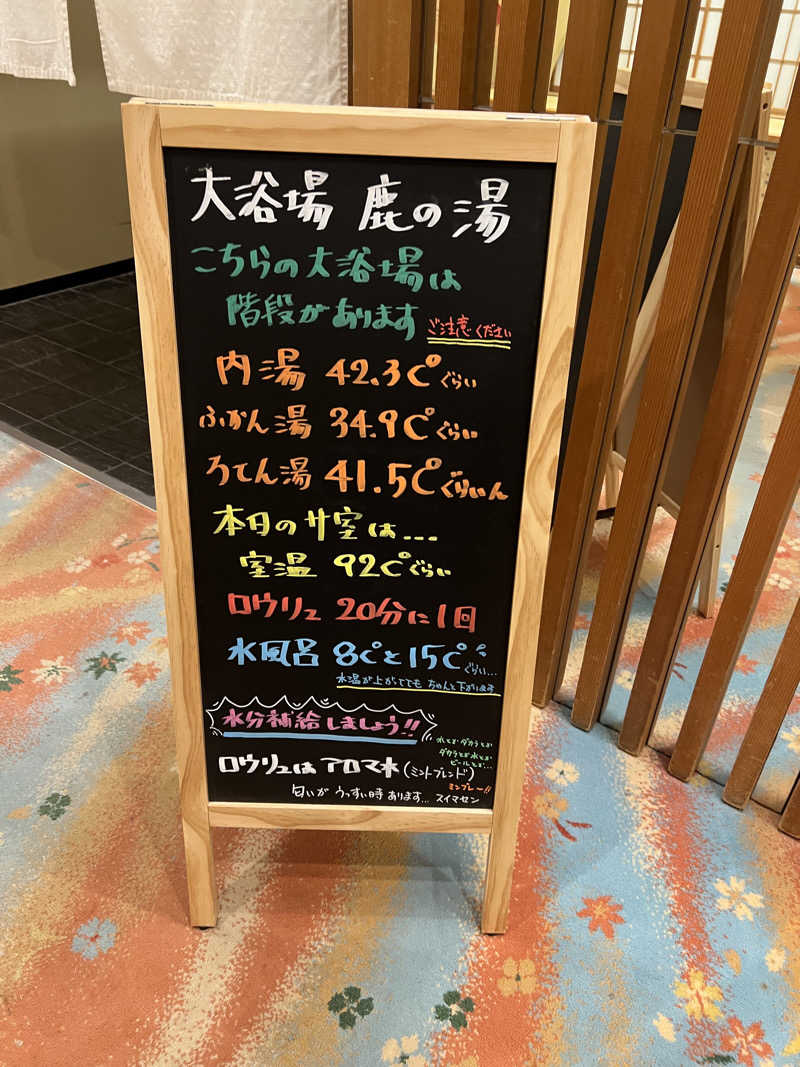 大浴場 鹿の湯
こちらの大浴場は
階段があります ご注意ください
内湯 42.3C°ぐらい
ふかん湯 34.9C°ぐらい
ろてん湯 41.5C°ぐらいん
本日のサ室は...
室温 92C°ぐらい
ロウリュ 20分に1回
水風呂 8C°と15C°ぐらい...
水温が上がてても ちゃんと下がります
水分補給しましょう!!
水とかダカラとか
ダカラとか水とか
ビールとか...
ロウリュはアロマ水(ミントブレンド)
ミンブレー!!
匂いが うっすい時あります... スイマセン